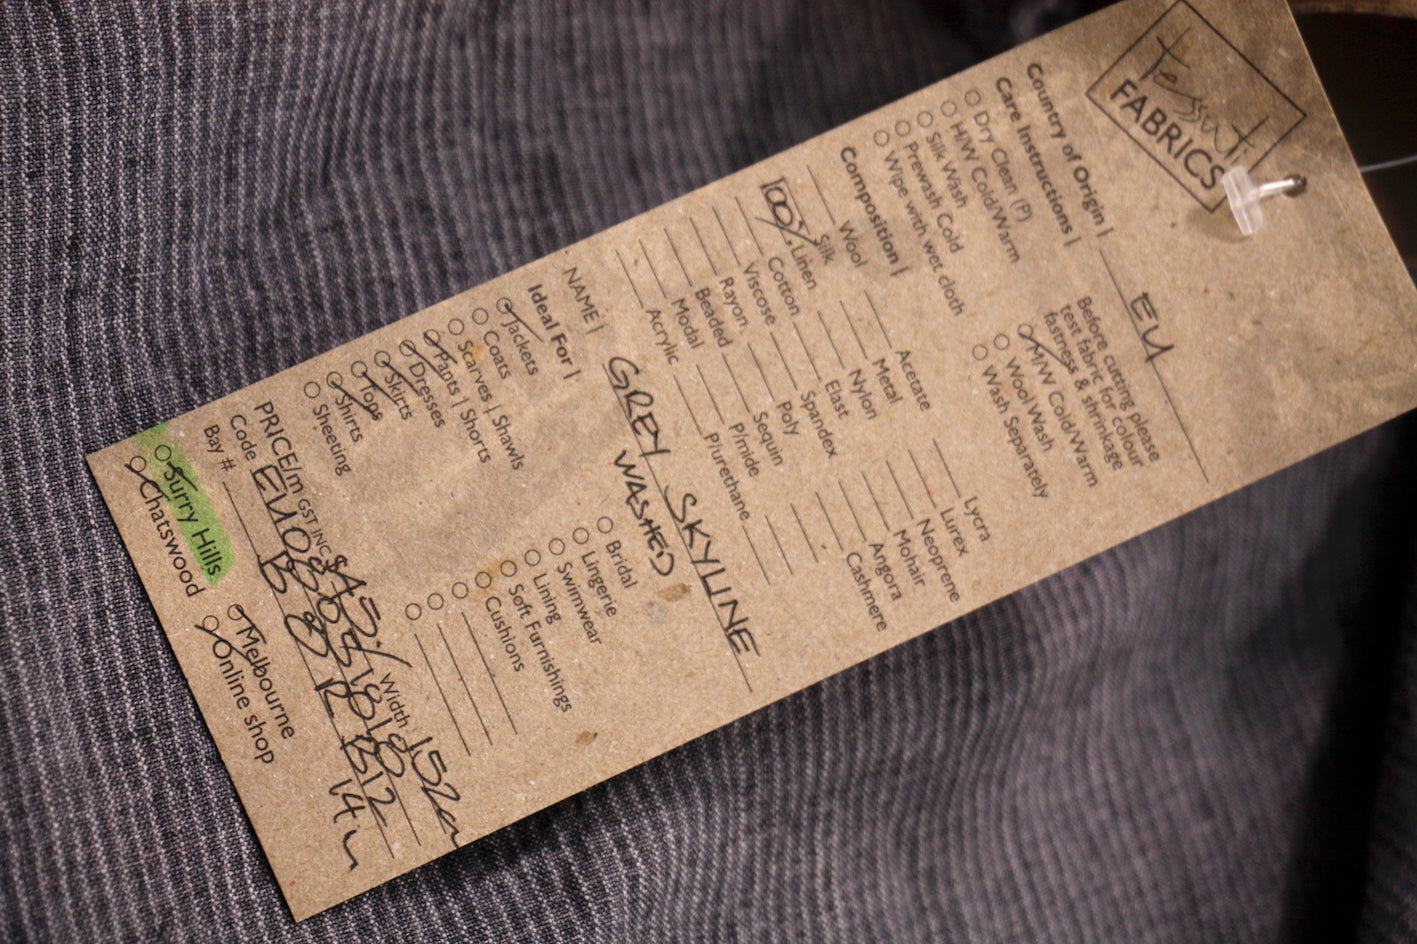 tessuti
FABRICS
Country of Origin | EU
Care Instructions |
Dry Clean (P)
H/W Cold/Warm
Silk Wash
Prewash Cold
Wipe with wet cloth
Before cutting please
test fabric for colour
fastness & shrinkage
M/W Cold/Warm
Wool Wash
Wash Separately
Composition |
Wool
Silk
100% Linen
Cotton
Viscose
Rayon
Beaded
Modal
Acrylic
Acetate
Metal
Nylon
Elast
Spandex
Poly
Sequin
P/mide
P/urethane
Lycra
Lurex
Neoprene
Mohair
Angora
Cashmere
NAME | GREY SKYLINE
WASHED
Ideal For |
Jackets
Coats
Scarves | Shawls
Pants | Shorts
Dresses
Skirts
Tops
Shirts
Sheeting
Bridal
Lingerie
Swimwear
Lining
Soft Furnishings
Cushions
PRICE/m GST INC Width 152cm
Code
Bay # B 8 R B12
14m
Surry Hills
Chatswood
Melbourne
Online shop